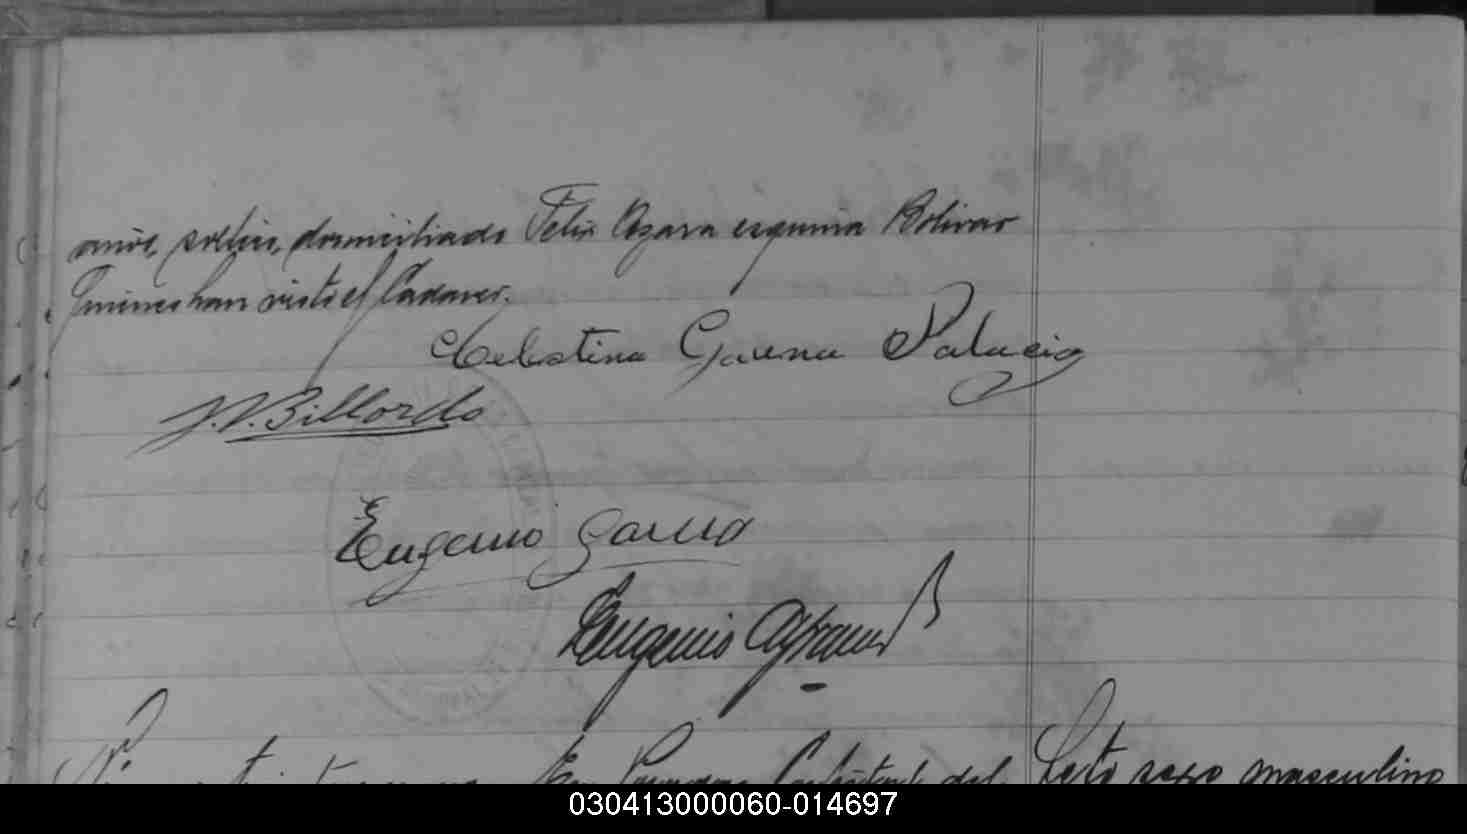 años, soltero, domiciliado Felix Azara esquina Bolivar
Quienes han visto el Cadaver.
Celestina Garcia Palacio
J. V. Billordo
Eugenio Garcia
Eugenio
del Feto sexo masculino
030413000060-014697